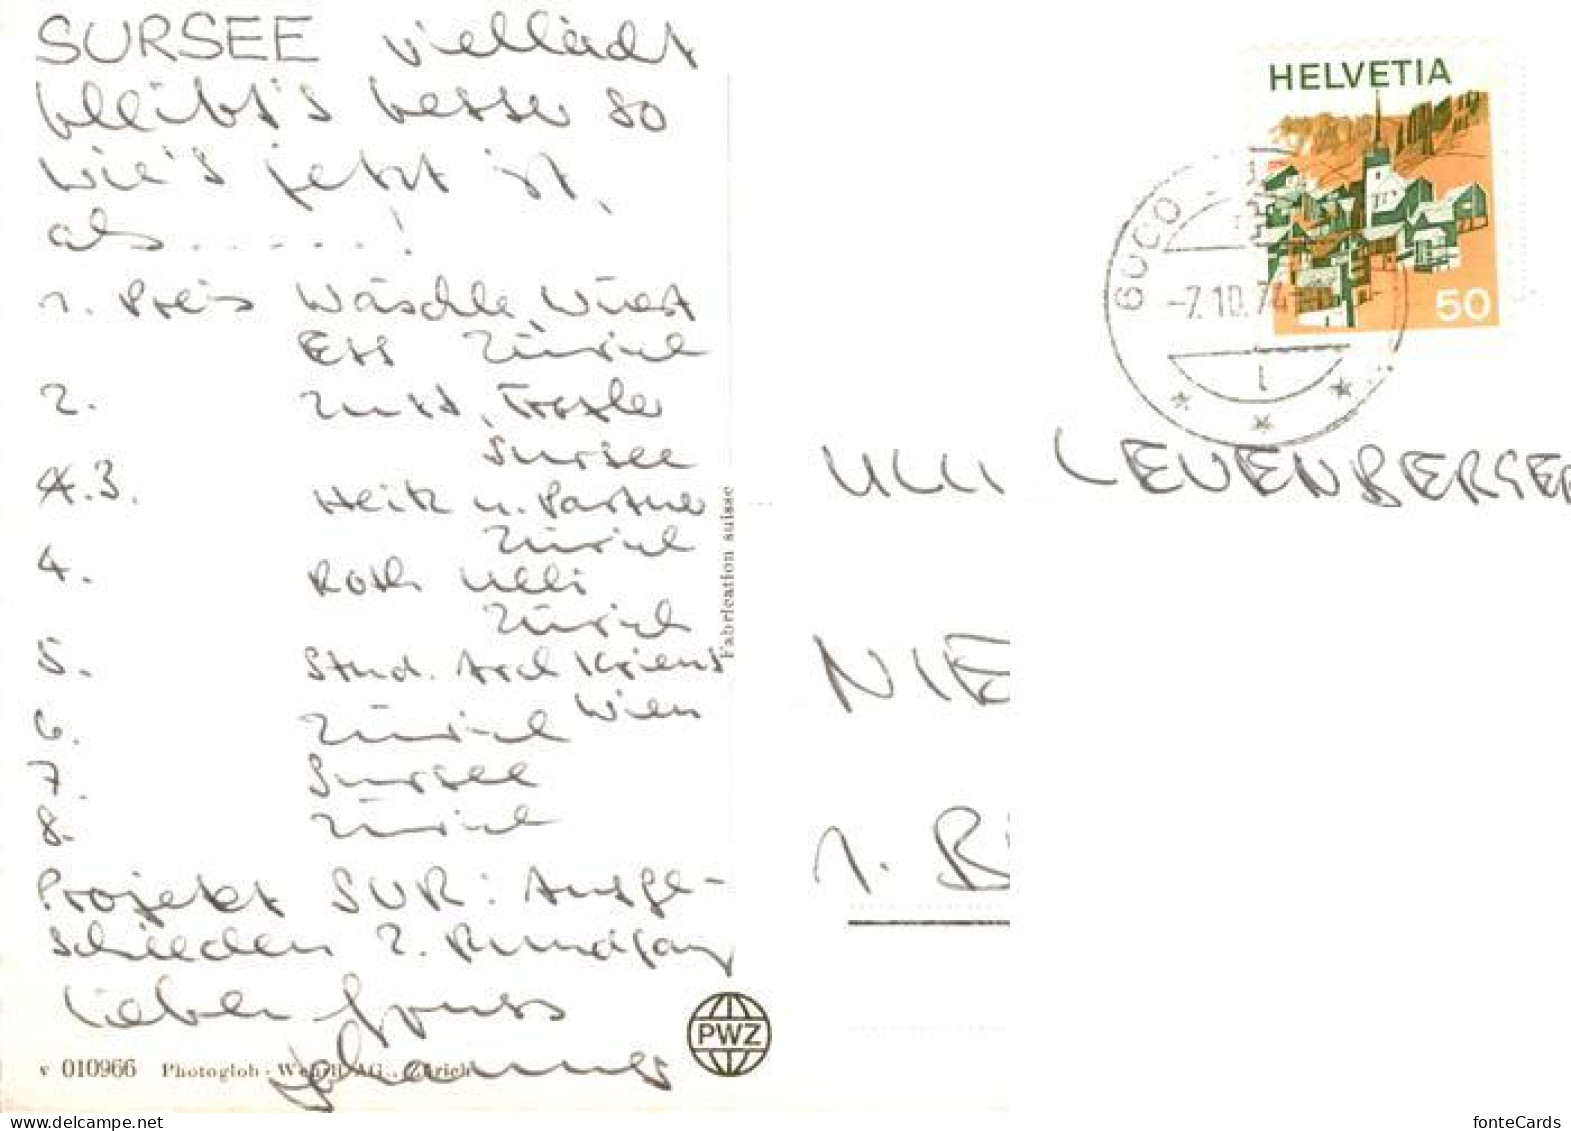 SURSEE vielleicht
bleibt's besser so
wie's jetzt ist,
als . . . . . . !
1. Preis Wäschle, Wüest
Ess Zürich
2. Zust, Troxler
Sursee
3. Heitz u. Partner
Zürich
4. Roth Ulli
Zürich
5. Stud. Arch Kriens
Wien
6. Zürich
7. Sursee
8. Zürich
Projekt SUR: Ausge-
schieden 2. Rundgang
Lieben Gruss
Johannes
v 010966 Photoglob-Wehrli AG., Zürich
Fabrication suisse
PWZ
HELVETIA
50
6000
-7.10.74
ULLI LEUENBERGER
NIE
1. B
www.delcampe.net
fonteCards